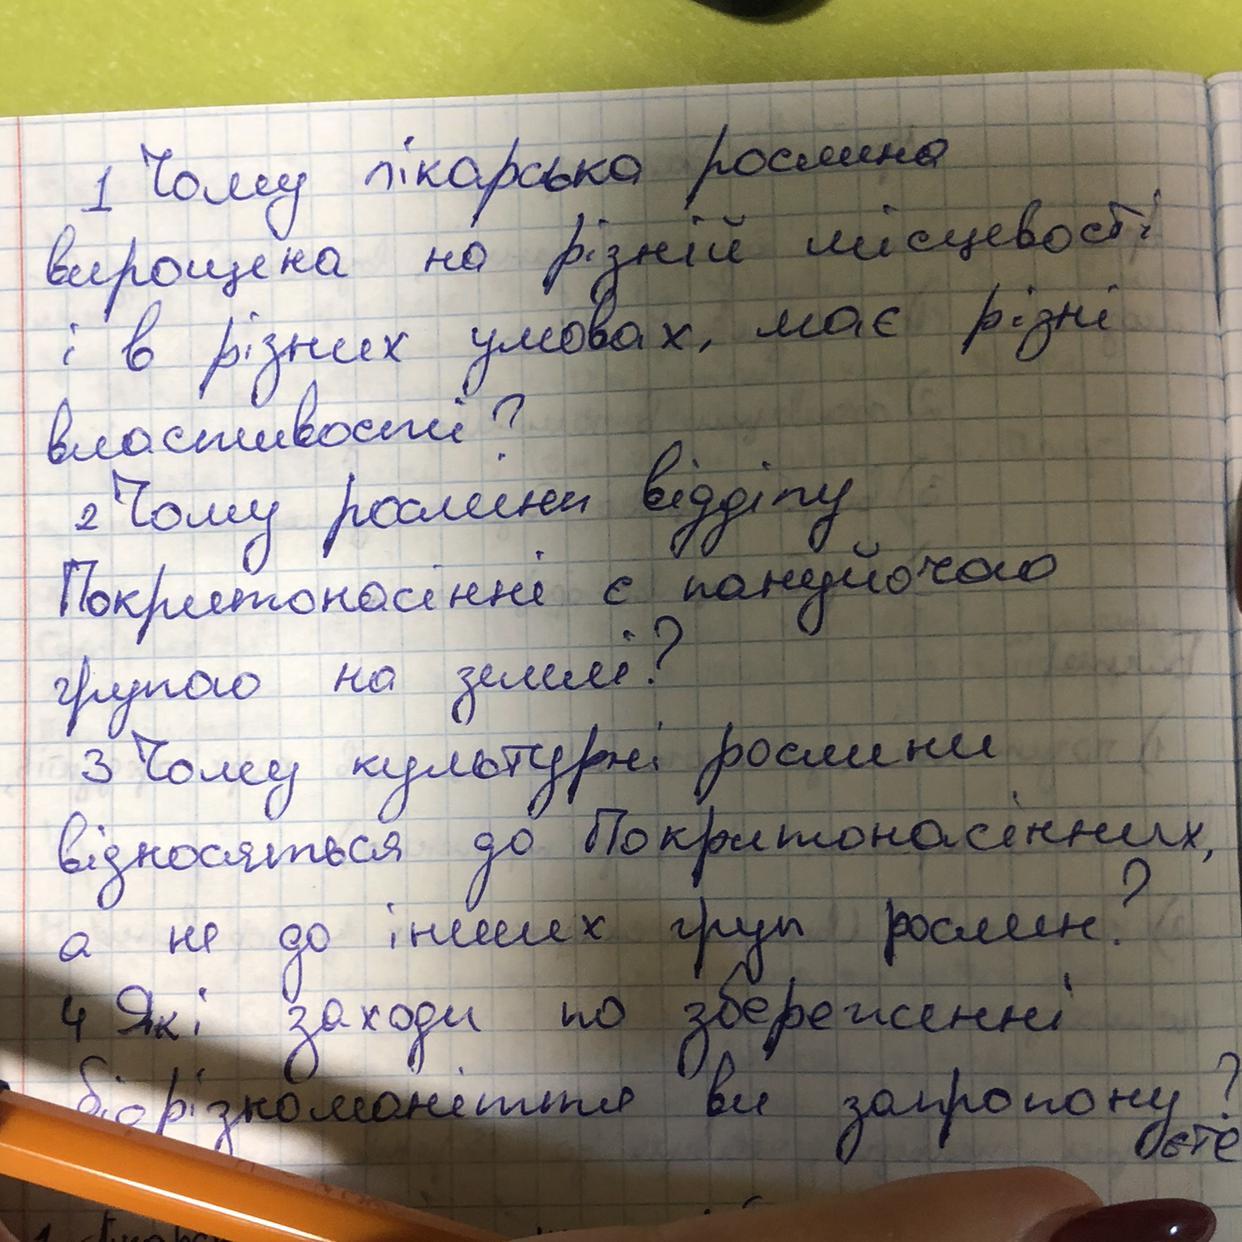 1 Чому лікарська рослина
вирощена на різній місцевості
і в різних умовах, має різні
властивості?
2 Чому рослини відділу
Покритонасінні є пануйочою
групою на землі?
3 Чому культурні рослини
відносяться до Покритонасінних,
а не до інших груп рослин?
4 Які заходи по збереженні
біорізноманіття ви запропону?
єте